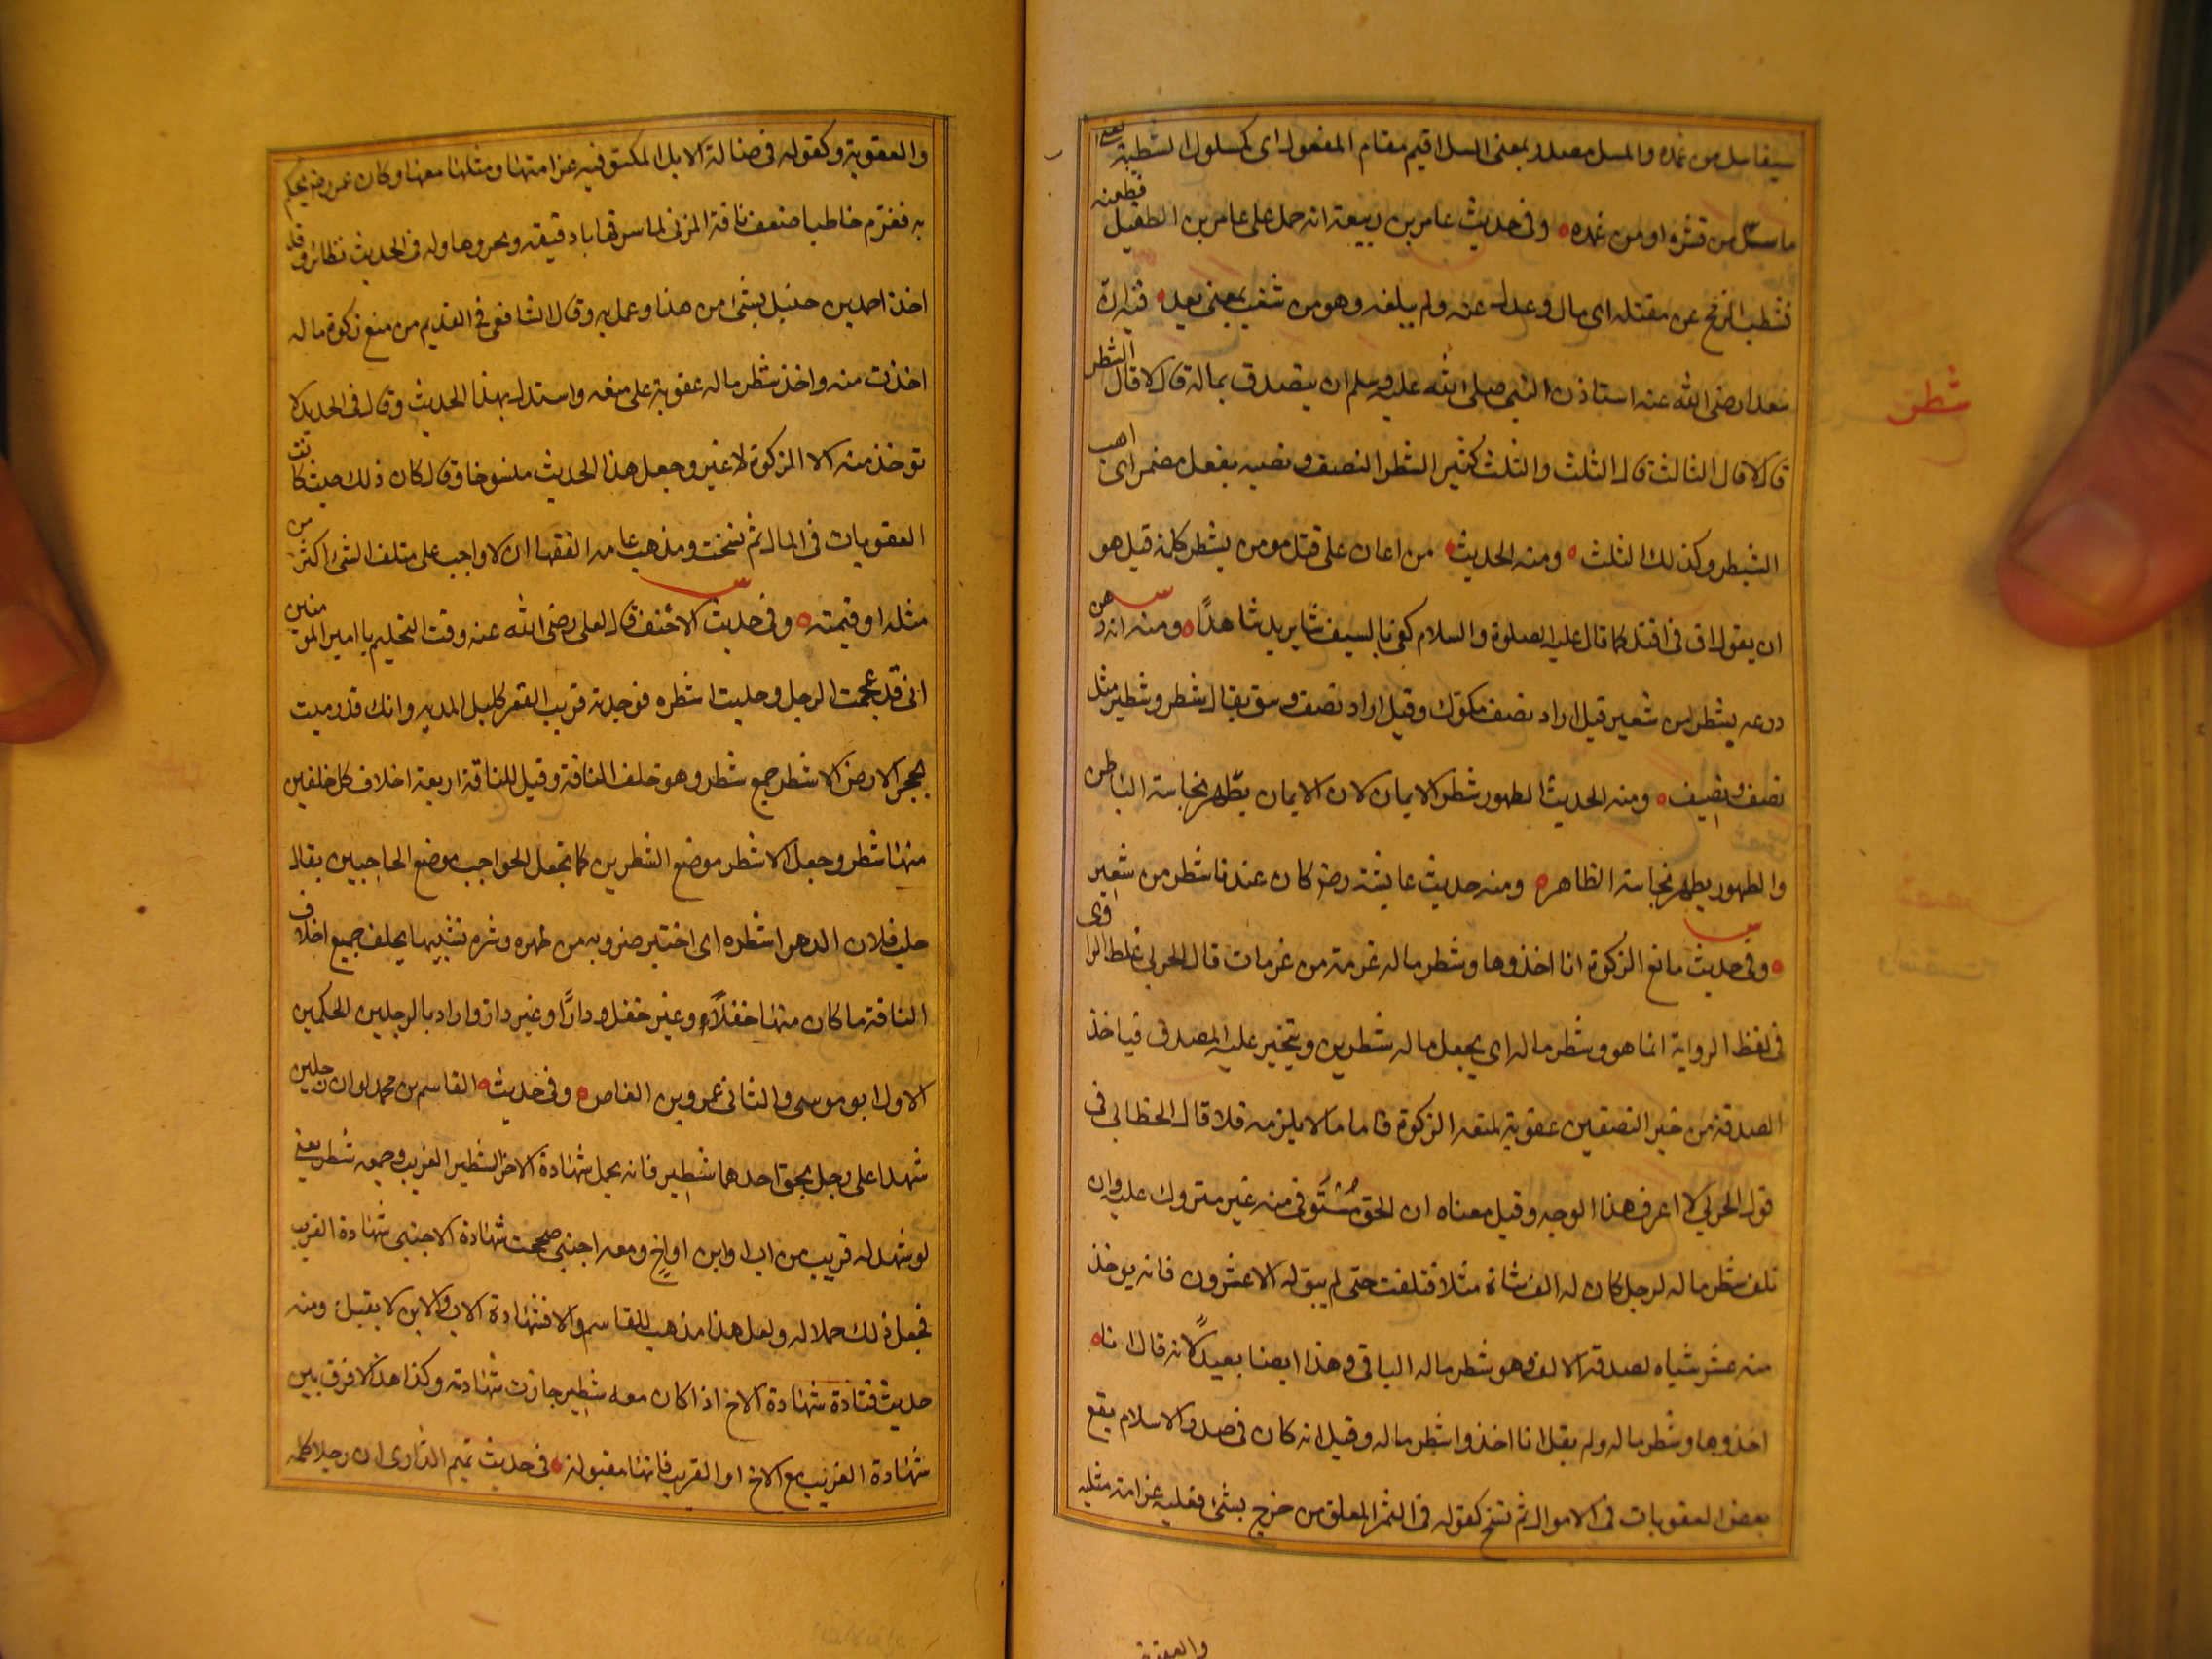 سيفا سل من غمده والمسل مصدر بمعنى السل اقيم مقام المفعول اى كمسلول الشطبة يعنى
ما سُلّ من قشره او من غمده وفى حديث عامر بن ربيعة انه حمل على عامر بن الطفيل فطعنه
فشطب الرمح عن مقتله اى مال وعدل عنه ولم يبلغه وهو من شطب بمعنى بعد فيه ان
سعدا رضى الله عنه استاذن النبى صلى الله عليه وسلم ان يتصدق بماله قال لا قال الشطر
قال لا قال الثالث قال الثلث والثلث كثير الشطر النصف ونصبه بفعل مضمر اى اهب
الشطر وكذلك الثلث ومنه الحديث من اعان على قتل مومن بشطر كلمة قيل هو
ان يقول اق فى اقتل كما قال عليه الصلوة والسلام كفى بالسيف شا يريد شاهدًا ومنه انه رهن
درعه بشطر من شعير قيل اراد نصف مكوك وقيل اراد نصف وسق يقال شطر وشطير مثل
نصف ونصيف ومنه الحديث الطهور شطر الايمان لان الايمان يطهر نجاسة الباطن
والطهور يطهر نجاسة الظاهر ومنه حديث عايشة رضه كان عندنا شطر من شعير
وفى حديث مانع الزكوة انا اخذوها وشطر ماله غرمة من غرمات قال الحربى غلط الراوى
فى لفظ الرواية انما هو وشطر ماله اى يجعل ماله شطرين ويتخير عليه المصدق فياخذ
الصدقة من خير النصفين عقوبة لمنعه الزكوة فاما ما لا يلزمه فلا قال الخطابى فى
قول الحربي لا اعرف هذا الوجه وقيل معناه ان الحق مُسْتَوفى منه غير متروك عليه وان
تلف شطر ماله لرجل كان له الف شاة مثلا فتلفت حتى لم يبق له الا عشرون فانه يوخذ
منه عشر شياه لصدقة الالف وهو شطر ماله الباقى وهذا ايضا بعيد لانه قال انا
اخذوها وشطر ماله ولم يقل انا اخذوا شطر ماله وقيل انه كان فى صدر الاسلام يقع
بعض العقوبات فى الاموال ثم نسخ كقوله فى الثمر المعلق من خرج بشئ فعليه غرامة مثليه
والعقوبة
شطر
والعقوبة وكقوله فى ضالة الابل المكتوفيه غرامتها ومثلها معها وكان عمر رضه يحكم
به فغرم حاطبا ضعف ناقة المزنى لما سرقها باد قيقه ونحروها وله فى الحديث نظائر وقد
اخذ احمد بن حنبل بشئ من هذا وعمل به وقال الشافعى فى القديم من منع زكوة ماله
اخذت منه واخذ شطر ماله عقوبة على منعه واستدل بهذا الحديث وقال فى الجديد لا
توخذ منه الا الزكوة لا غير وجعل هذا الحديث منسوخا وقال كان ذلك حيث كانت
العقوبات فى المال ثم نسخت ومذهب عامه الفقها ان لا واجب على متلف الشئ اكثر من
مثله او قيمته وفى حديث الاحنف قال لعلى رضى الله عنه وقت التحكيم يا امير المومنين
انى قد عجمت الرجل وحلبت اشطره فوجدته قريب القعر كليل المدية وانك قد رميت
بحجر الارض الاشطر جمع شطر وهو خلف الناقة وقيل للناقة اربعة اخلاف كل خلفين
منها شطر وجعل الاشطر موضع الشطرين كما تجعل الحواجب موضع الحاجبين يقال
حلب فلان الدهر اشطره اى اختبر ضروبه من خيره وشره تشبيها بحلف جميع اخلاف
الناقة ما كان منها حفلاً وغير حفل ودارًا وغير دار واراد بالرجلين الحكمين
الاول ابو موسى والثانى عمرو بن العاص وفى حديث القاسم بن محمد لو ان رجلين
شهدا على رجل بحق احدهما شطير فانه يحمل شهادة الاخر الشطير الغريب وجمعه شطر يعنى
لو شهد له قريب من اب او ابن او اخٍ ومعه اجنبى صححت شهادة الاجنبى شهادة القريب
فجعل ذلك حملا له ولعل هذا مذهب للقاسم والا فشهادة الاب والابن لا يقبل ومنه
حديث قتادة شهادة الاخ اذا كان معه شطير جازت شهادته وكذا هذا لا فرق بين
شهادة الغريب مع الاخ او القريب فانها مقبولة فى حديث تميم الدارى ان رجلا كلمه